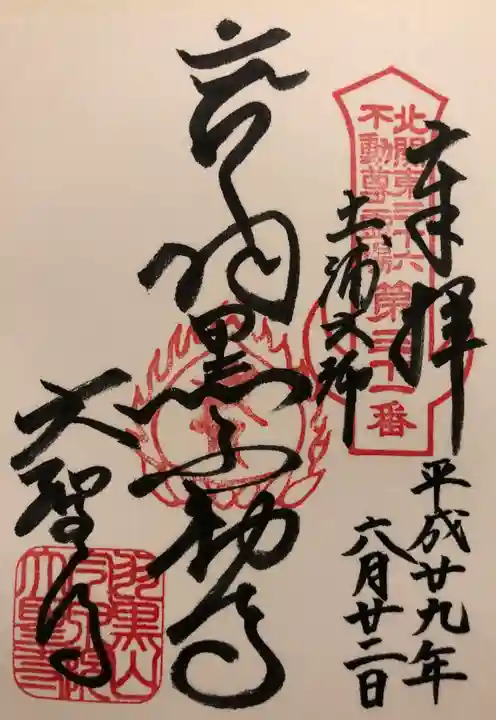 奉拝
北関東三十六
不動尊霊場
第三十一番
土浦大師
平成廿九年
六月廿二日
羽黒不動尊
大聖寺
羽黒山
大聖寺